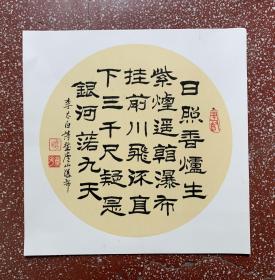 日照香爐生
紫煙遥看瀑布
挂前川飛流直
下三千尺疑是
銀河落九天
李太白詩望廬山瀑布